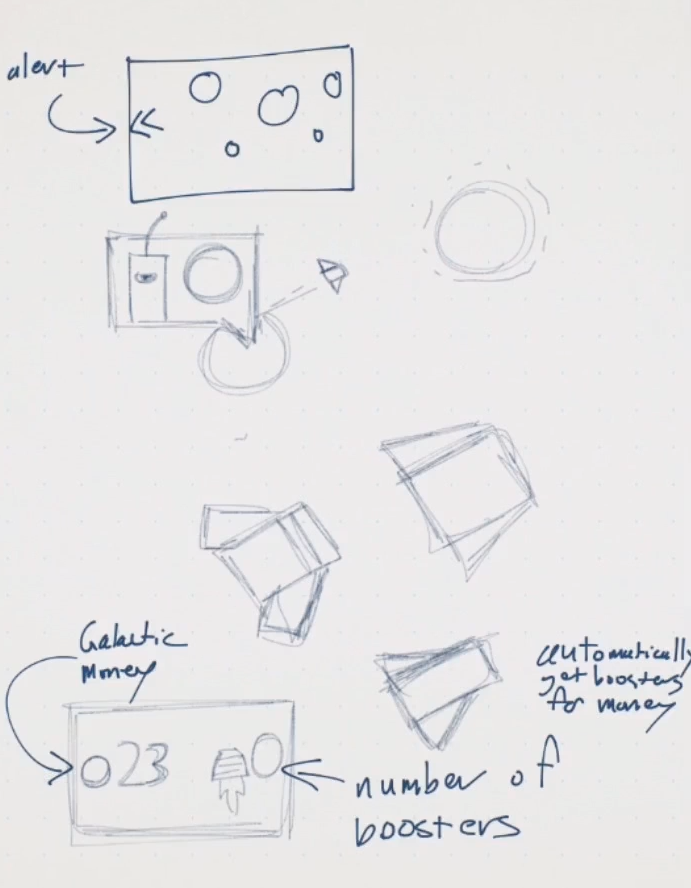 alert
Galactic
money
automatically
get boosters
for money
023
0
number of
boosters